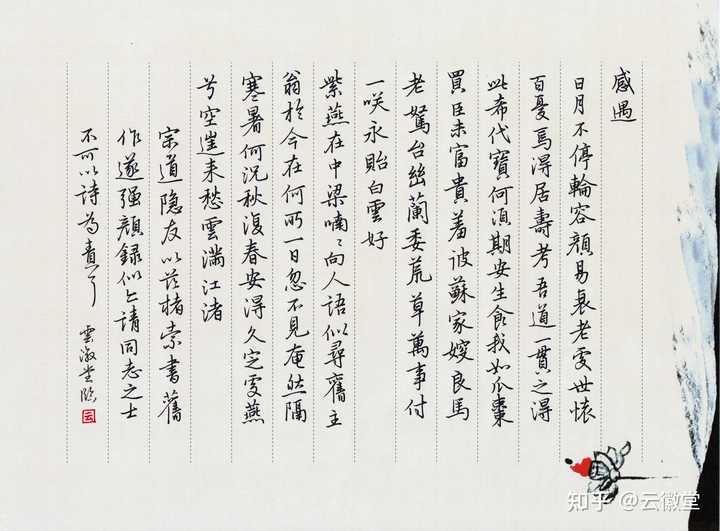 感遇
日月不停輪容顏易衰老處世懷
百憂焉得居壽考吾道一貫之得
此希代寶何須期安生食我如瓜棗
買臣未富貴羞被蘇家嫂良馬
老駑台幽蘭委荒草萬事付
一咲永貽白雲好
紫燕在中梁喃〻向人語似尋舊主
翁於今在何所一日忽不見奄然隔
寒暑何況秋復春安得久定處燕
兮空崖来愁雲滿江渚
宗道隐友以楮索書舊
作遂强顏録似請同志之士
不可以詩為責
雲徽堂臨
云
知乎 @云徽堂